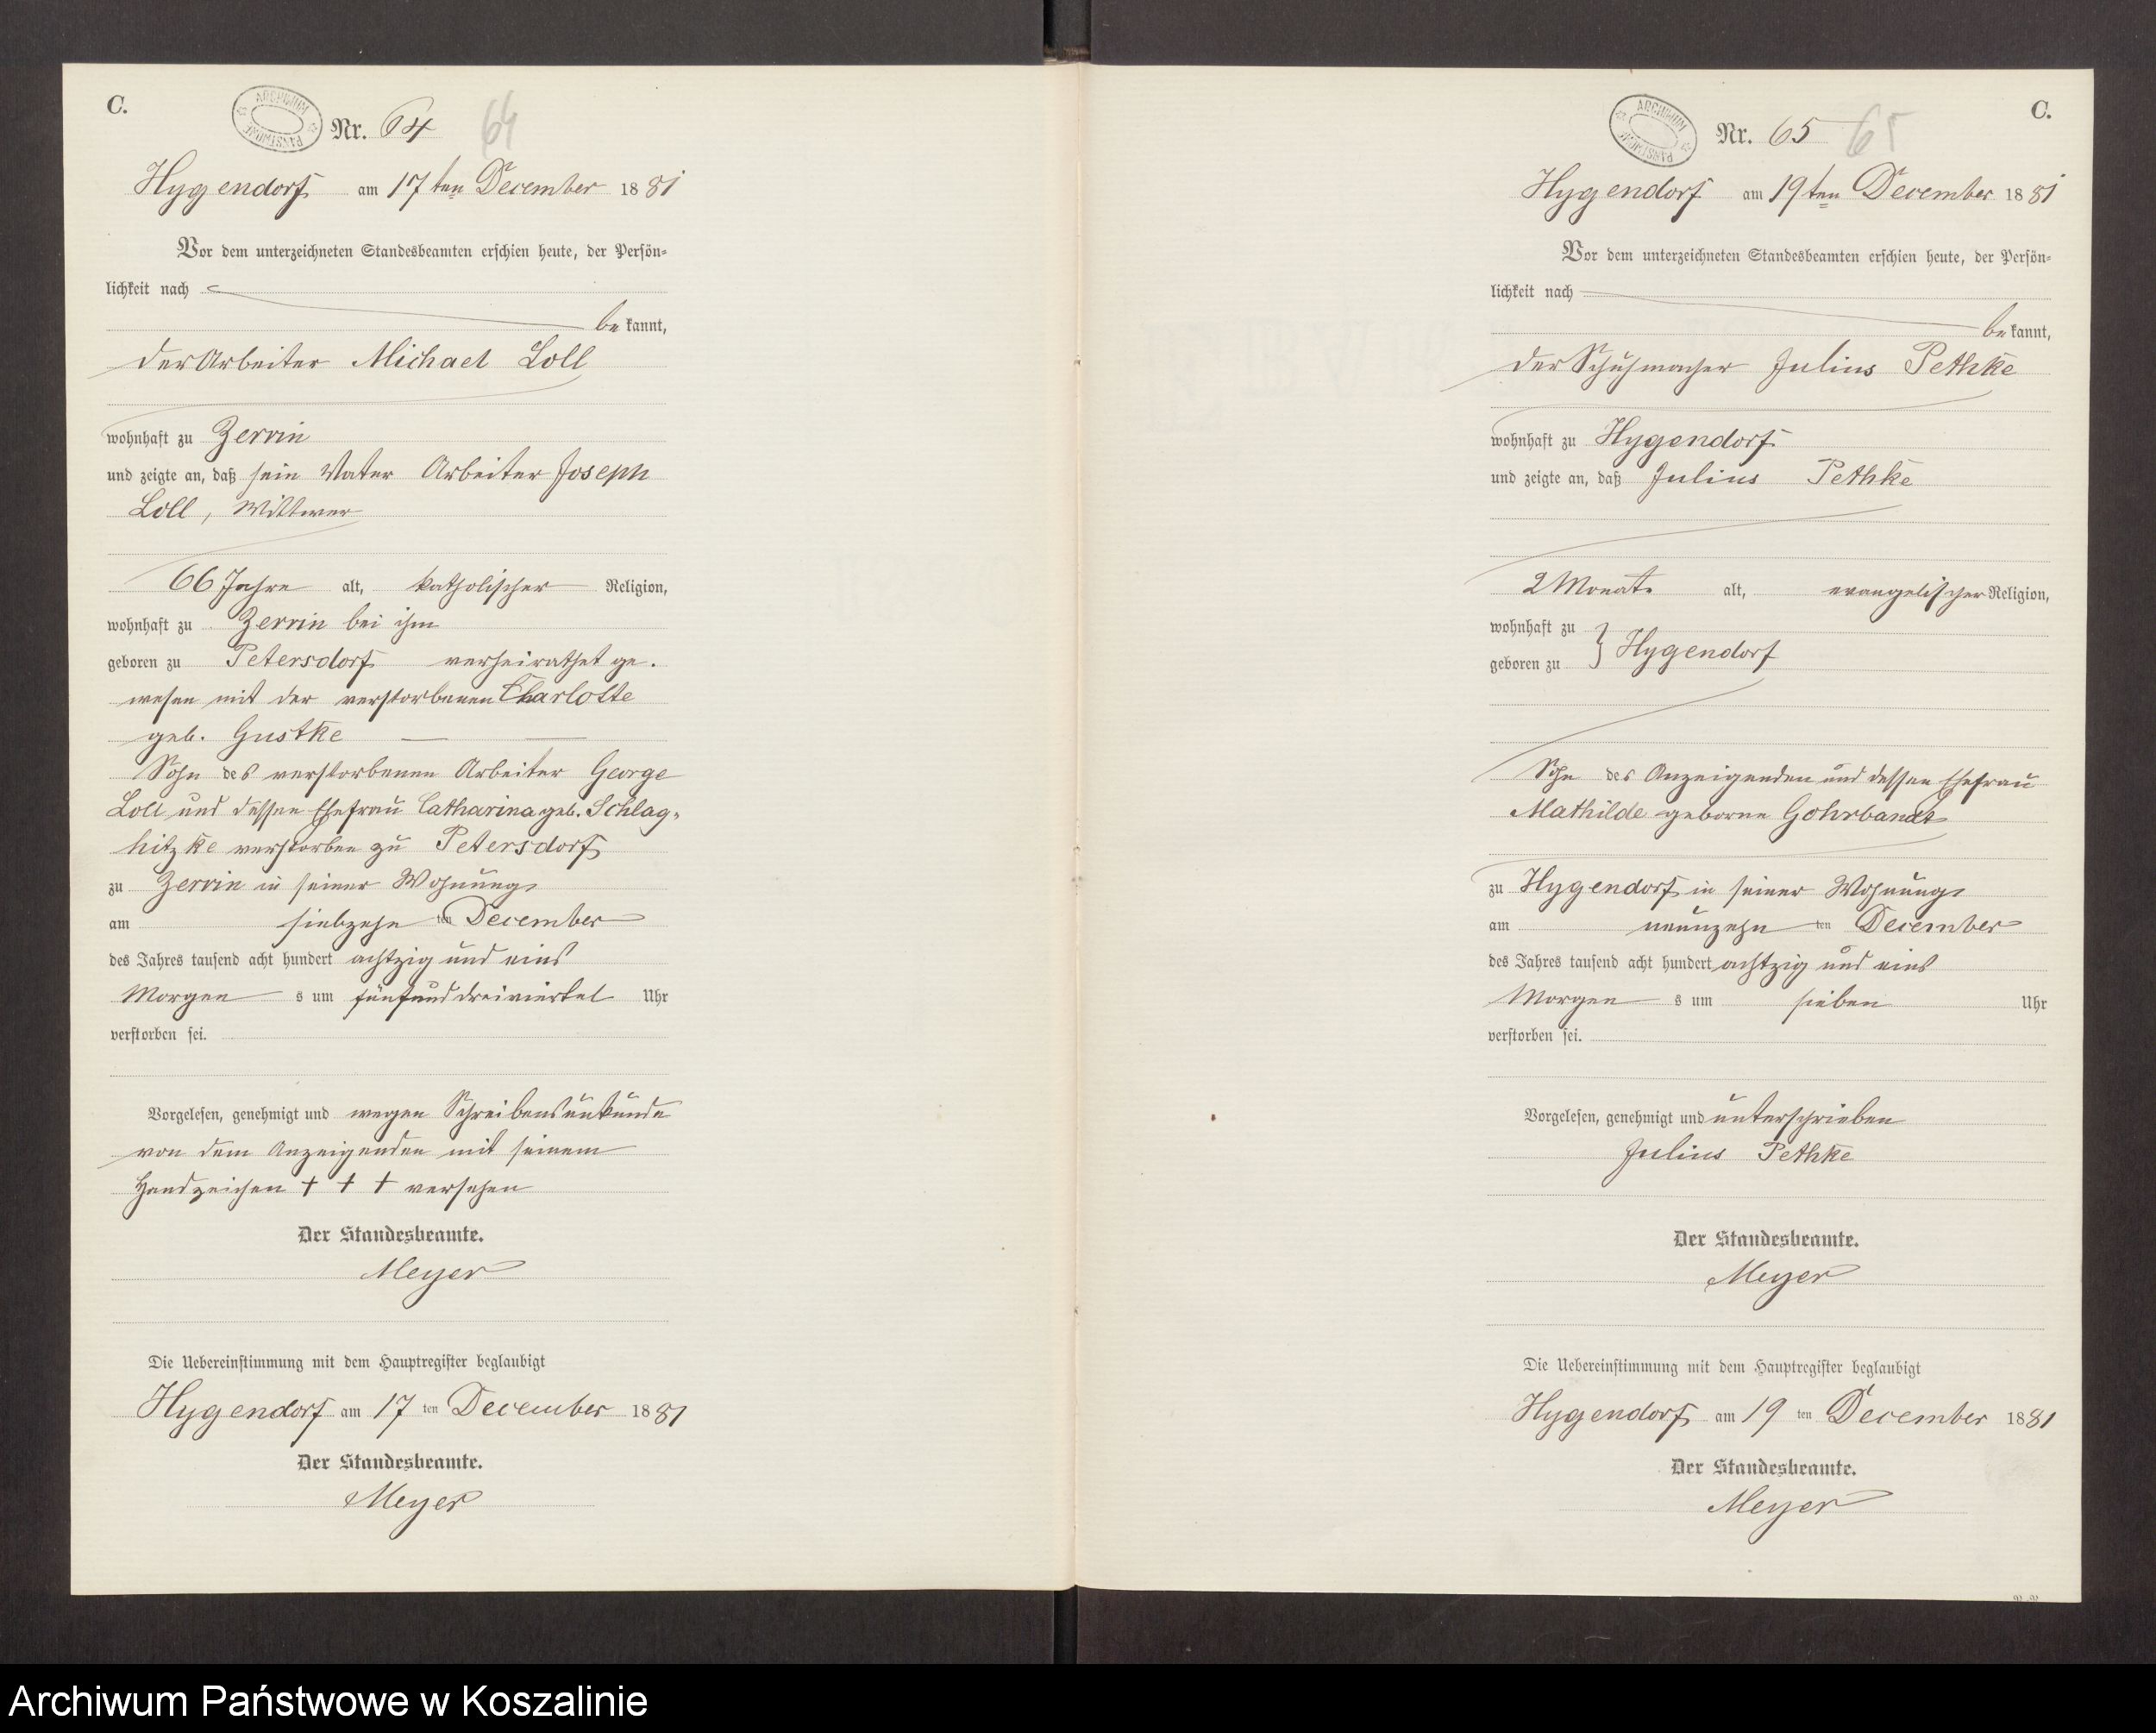 C.
ARCHIWUM PAŃSTWOWE
Nr. 64 64
Hygendorf am 17ten December 1881
Vor dem unterzeichneten Standesbeamten erschien heute, der Persön=
lichkeit nach
bekannt,
der Arbeiter Michael Loll
wohnhaft zu Zerrin
und zeigte an, daß sein Vater Arbeiter Joseph
Loll, Wittwer
66 Jahre alt, katholischer Religion,
wohnhaft zu Zerrin bei ihm
geboren zu Petersdorf verheirathet ge-
wesen mit der verstorbenen Charlotte
geb. Gustke
Sohn des verstorbenen Arbeiter George
Loll und dessen Ehefrau Catharina geb. Schlag-
hitzke verstorben zu Petersdorf
zu Zerrin in seiner Wohnung
am siebzehn ten December
des Jahres tausend acht hundert achtzig und eins
Morgens um fünf und dreiviertel Uhr
verstorben sei.
Vorgelesen, genehmigt und wegen Schreibensunkunde
von dem Anzeigenden mit seinem
Handzeichen + + + versehen
Der Standesbeamte.
Meyer
Die Uebereinstimmung mit dem Hauptregister beglaubigt
Hygendorf am 17 ten December 1881
Der Standesbeamte.
Meyer
C.
ARCHIWUM PAŃSTWOWE
Nr. 65 65
Hygendorf am 19ten December 1881
Vor dem unterzeichneten Standesbeamten erschien heute, der Persön=
lichkeit nach
bekannt,
der Schuhmacher Julius Pethke
wohnhaft zu Hygendorf
und zeigte an, daß Julius Pethke
2 Monate alt, evangelischer Religion,
wohnhaft zu
geboren zu } Hygendorf
Sohn des Anzeigenden und dessen Ehefrau
Mathilde geborne Gohrbandt
zu Hygendorf in seiner Wohnung
am neunzehn ten December
des Jahres tausend acht hundert achtzig und eins
Morgens um sieben Uhr
verstorben sei.
Vorgelesen, genehmigt und unterschrieben
Julius Pethke
Der Standesbeamte.
Meyer
Die Uebereinstimmung mit dem Hauptregister beglaubigt
Hygendorf am 19 ten December 1881
Der Standesbeamte.
Meyer
Archiwum Państwowe w Koszalinie